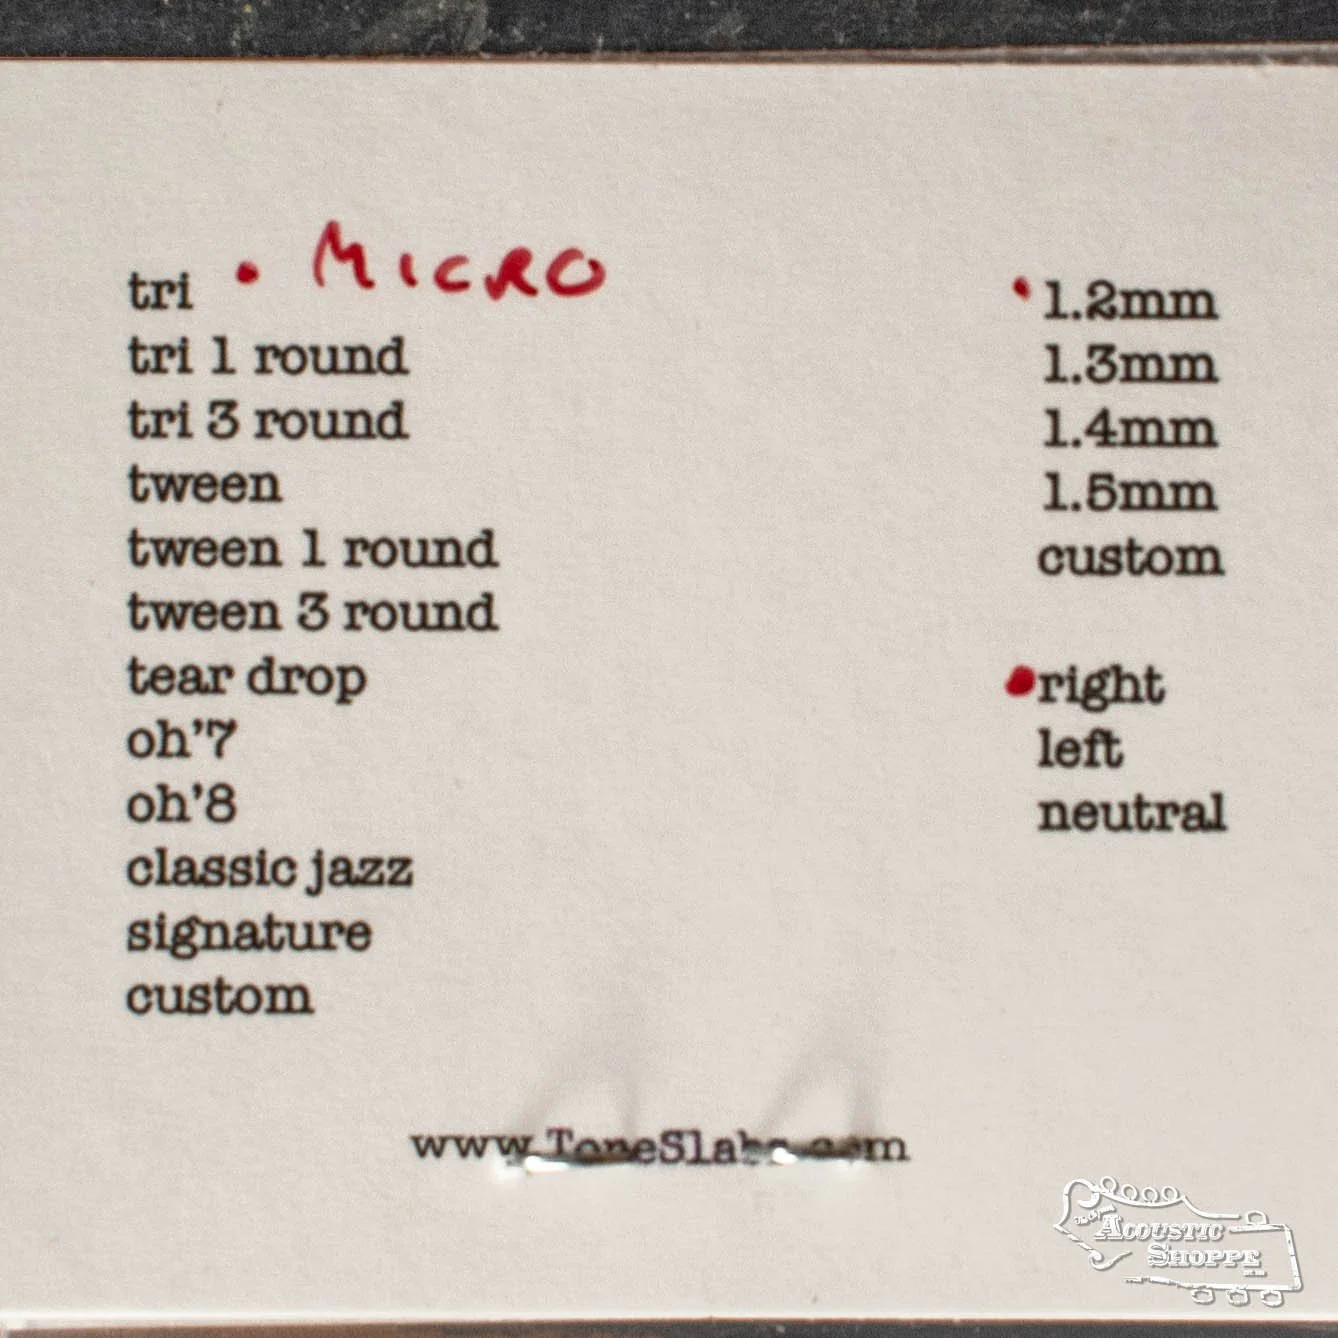 tri • MICRO
tri 1 round
tri 3 round
tween
tween 1 round
tween 3 round
tear drop
oh'7
oh'8
classic jazz
signature
custom
• 1.2mm
1.3mm
1.4mm
1.5mm
custom
• right
left
neutral
www.ToneSlabs.com
The Acoustic
Shoppe